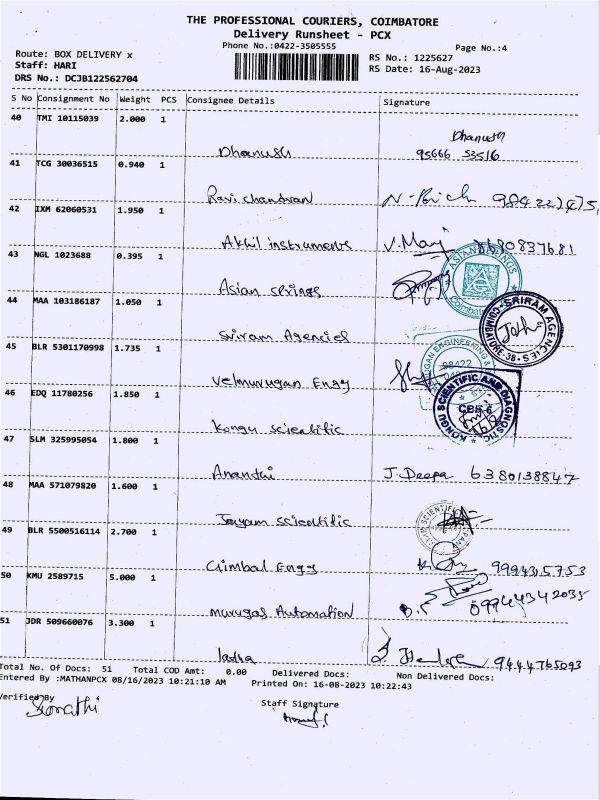 THE PROFESSIONAL COURIERS, COIMBATORE
Delivery Runsheet - PCX
Phone No.:0422-3505555
Page No.:4
Route: BOX DELIVERY x
Staff: HARI
DRS No.: DCJB122562704
RS No.: 1225627
RS Date: 16-Aug-2023
S No Consignment No Weight PCS Consignee Details Signature
40 TMI 10115039 2.000 1
Dhanush
Dhanush
95666 53516
41 TCG 30036515 0.940 1
Ravi chandran
42 IXM 62060531 1.950 1
Akhil instruments V. Mary 8680837681
43 NGL 1023688 0.395 1
Asian springs
ASIAN SPRINGS
44 MAA 103186187 1.050 1
Sriram Agencies
SRIRAM AGENCIES
COIMBATORE-38
45 BLR 5301170998 1.735 1
Velmurugan Engg
46 EDQ 11780256 1.850 1
Kongu scientific
KONGU SCIENTIFIC AND DIAGNOSTIC
CBE 6
47 SLM 325995054 1.800 1
Anandhi J. Deepa 6380138847
48 MAA 571079820 1.600 1
Jayam scientific
49 BLR 5500516114 2.700 1
Gimbal Engg 9994315753
50 KMU 2589715 5.000 1
Murugas Automation 09944342035
51 JDR 509660076 3.300 1
9444765093
Total No. Of Docs: 51 Total COD Amt: 0.00 Delivered Docs: Non Delivered Docs:
Entered By :MATHANPCX 08/16/2023 10:21:10 AM Printed On: 16-08-2023 10:22:43
Verified By
Staff Signature